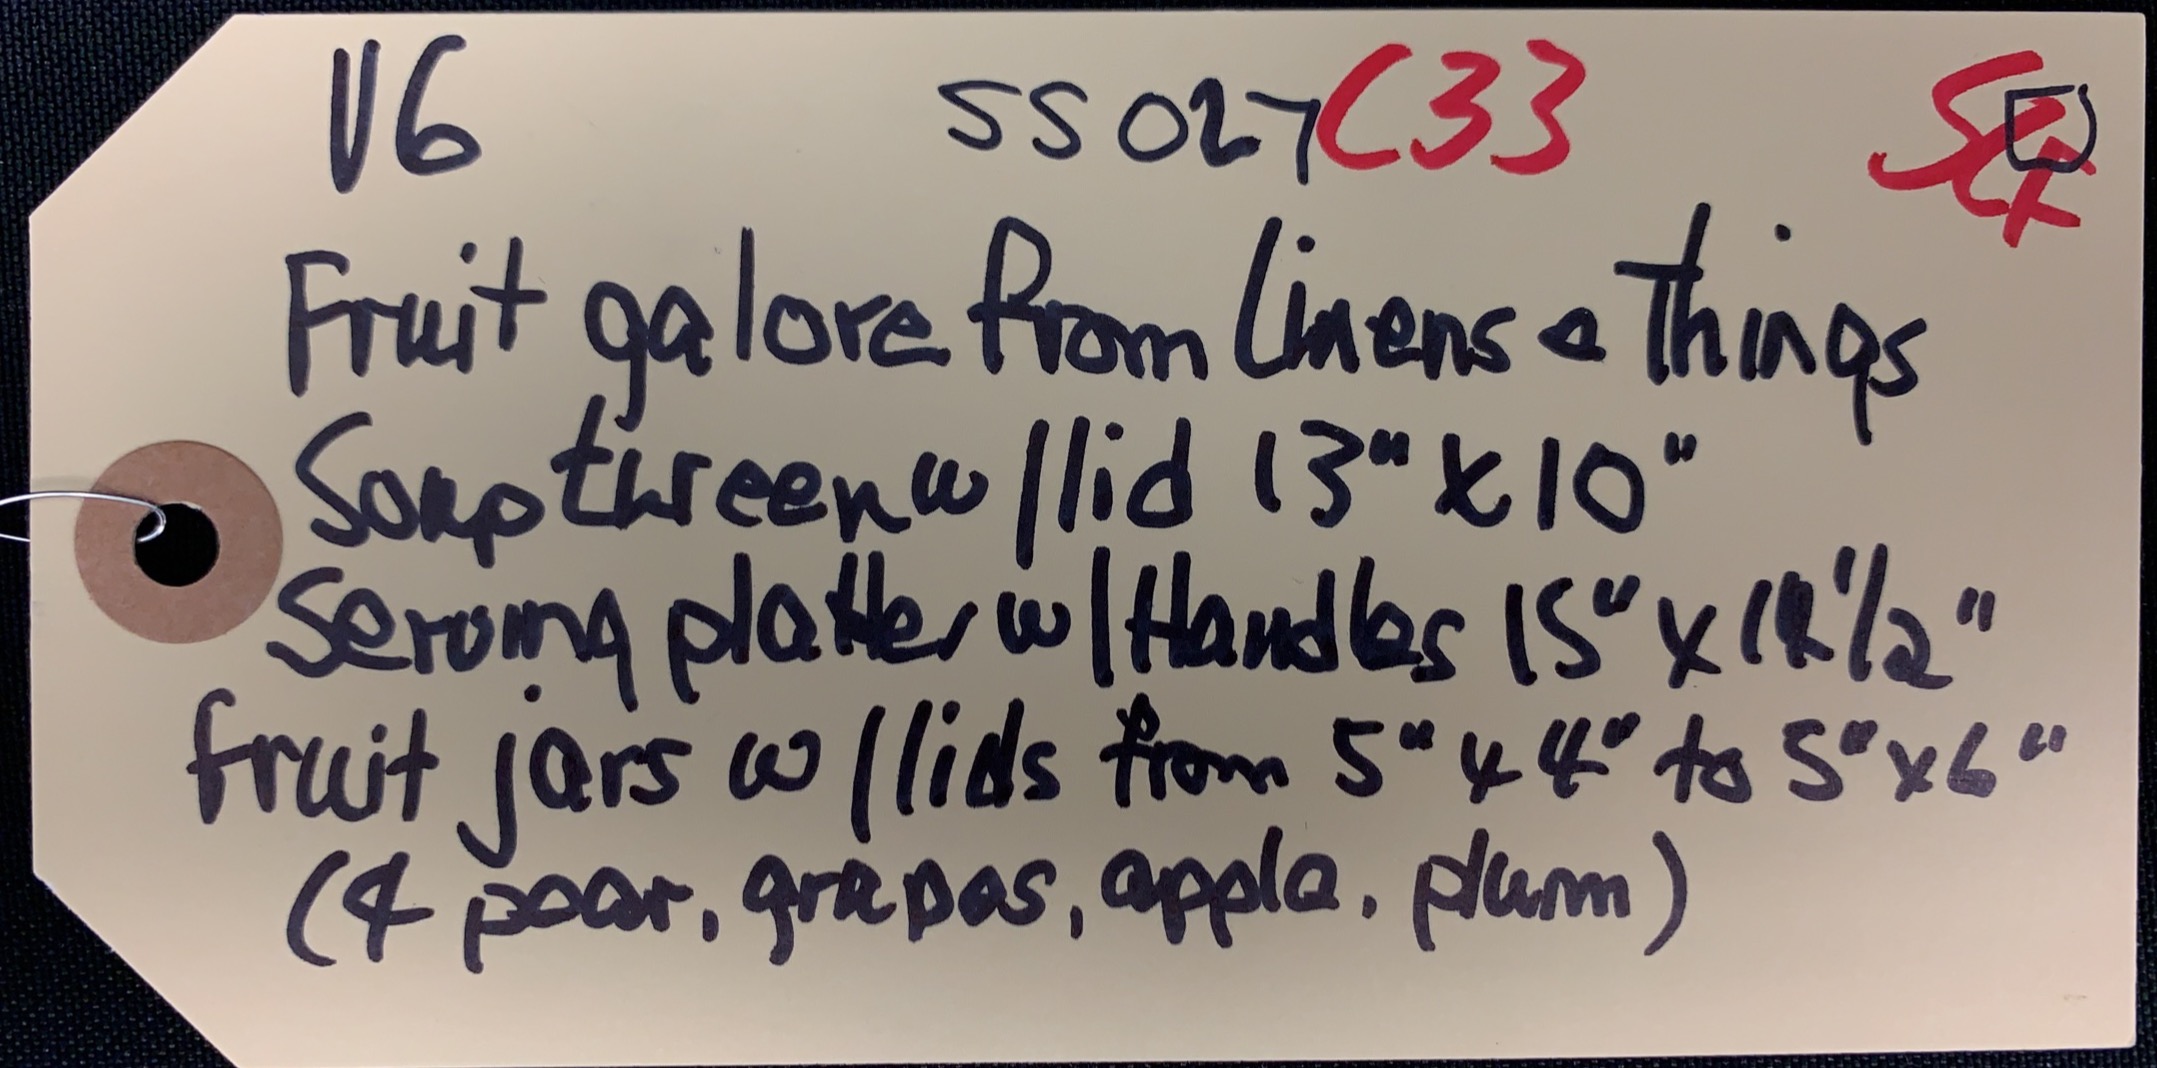 V6 SS027 C33
Fruit galore from linens & things
Soup thureen w/lid 13" x 10"
Serving platter w/Handles 15" x 1 1/2"
fruit jars w/lids from 5" x 4" to 5" x 6"
(4 pear, grapes, apple, plum)